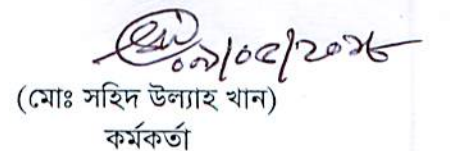 ০৯/০৫/২০২৮
(মোঃ সহিদ উল্যাহ খান)
কর্মকর্তা